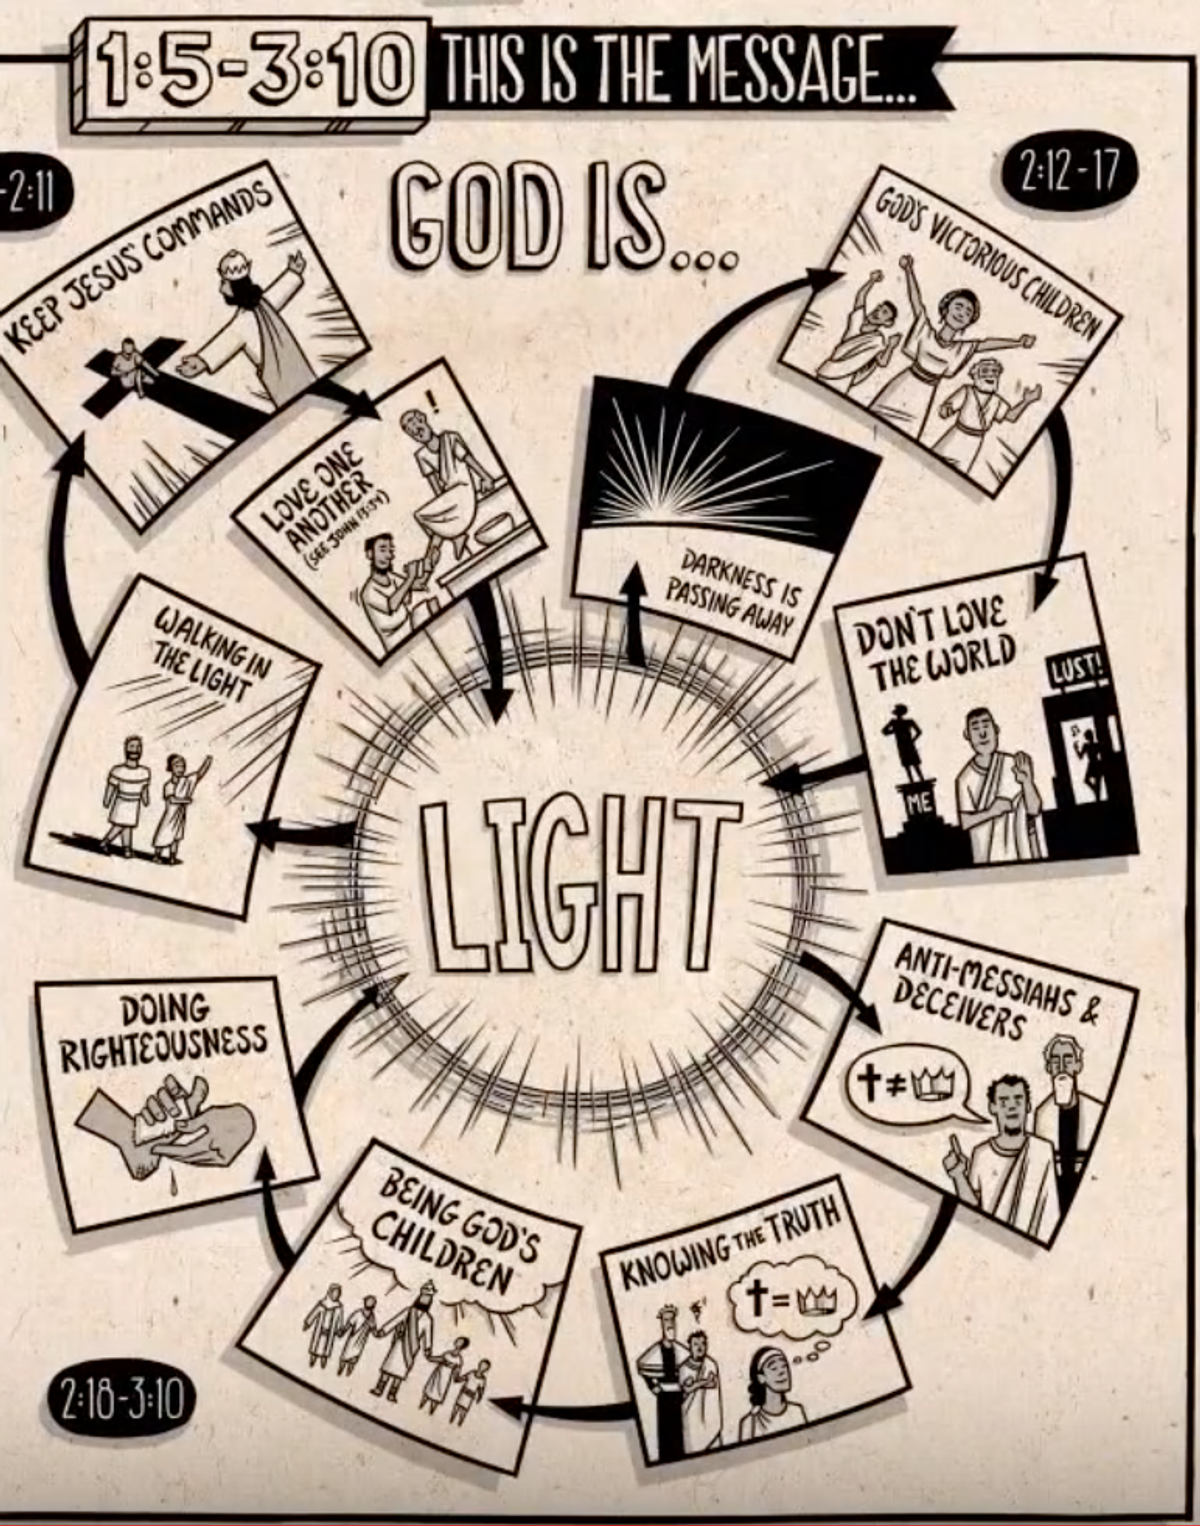 1:5-3:10 THIS IS THE MESSAGE...
-2:11
2:12-17
GOD IS...
KEEP JESUS' COMMANDS
GOD'S VICTORIOUS CHILDREN
!
LOVE ONE
ANOTHER
(SEE JOHN 13:34)
DARKNESS IS
PASSING AWAY
WALKING IN
THE LIGHT
DON'T LOVE
THE WORLD
LUST!
ME
LIGHT
DOING
RIGHTEOUSNESS
ANTI-MESSIAHS &
DECEIVERS
≠
BEING GOD'S
CHILDREN
KNOWING THE TRUTH
=
2:18-3:10